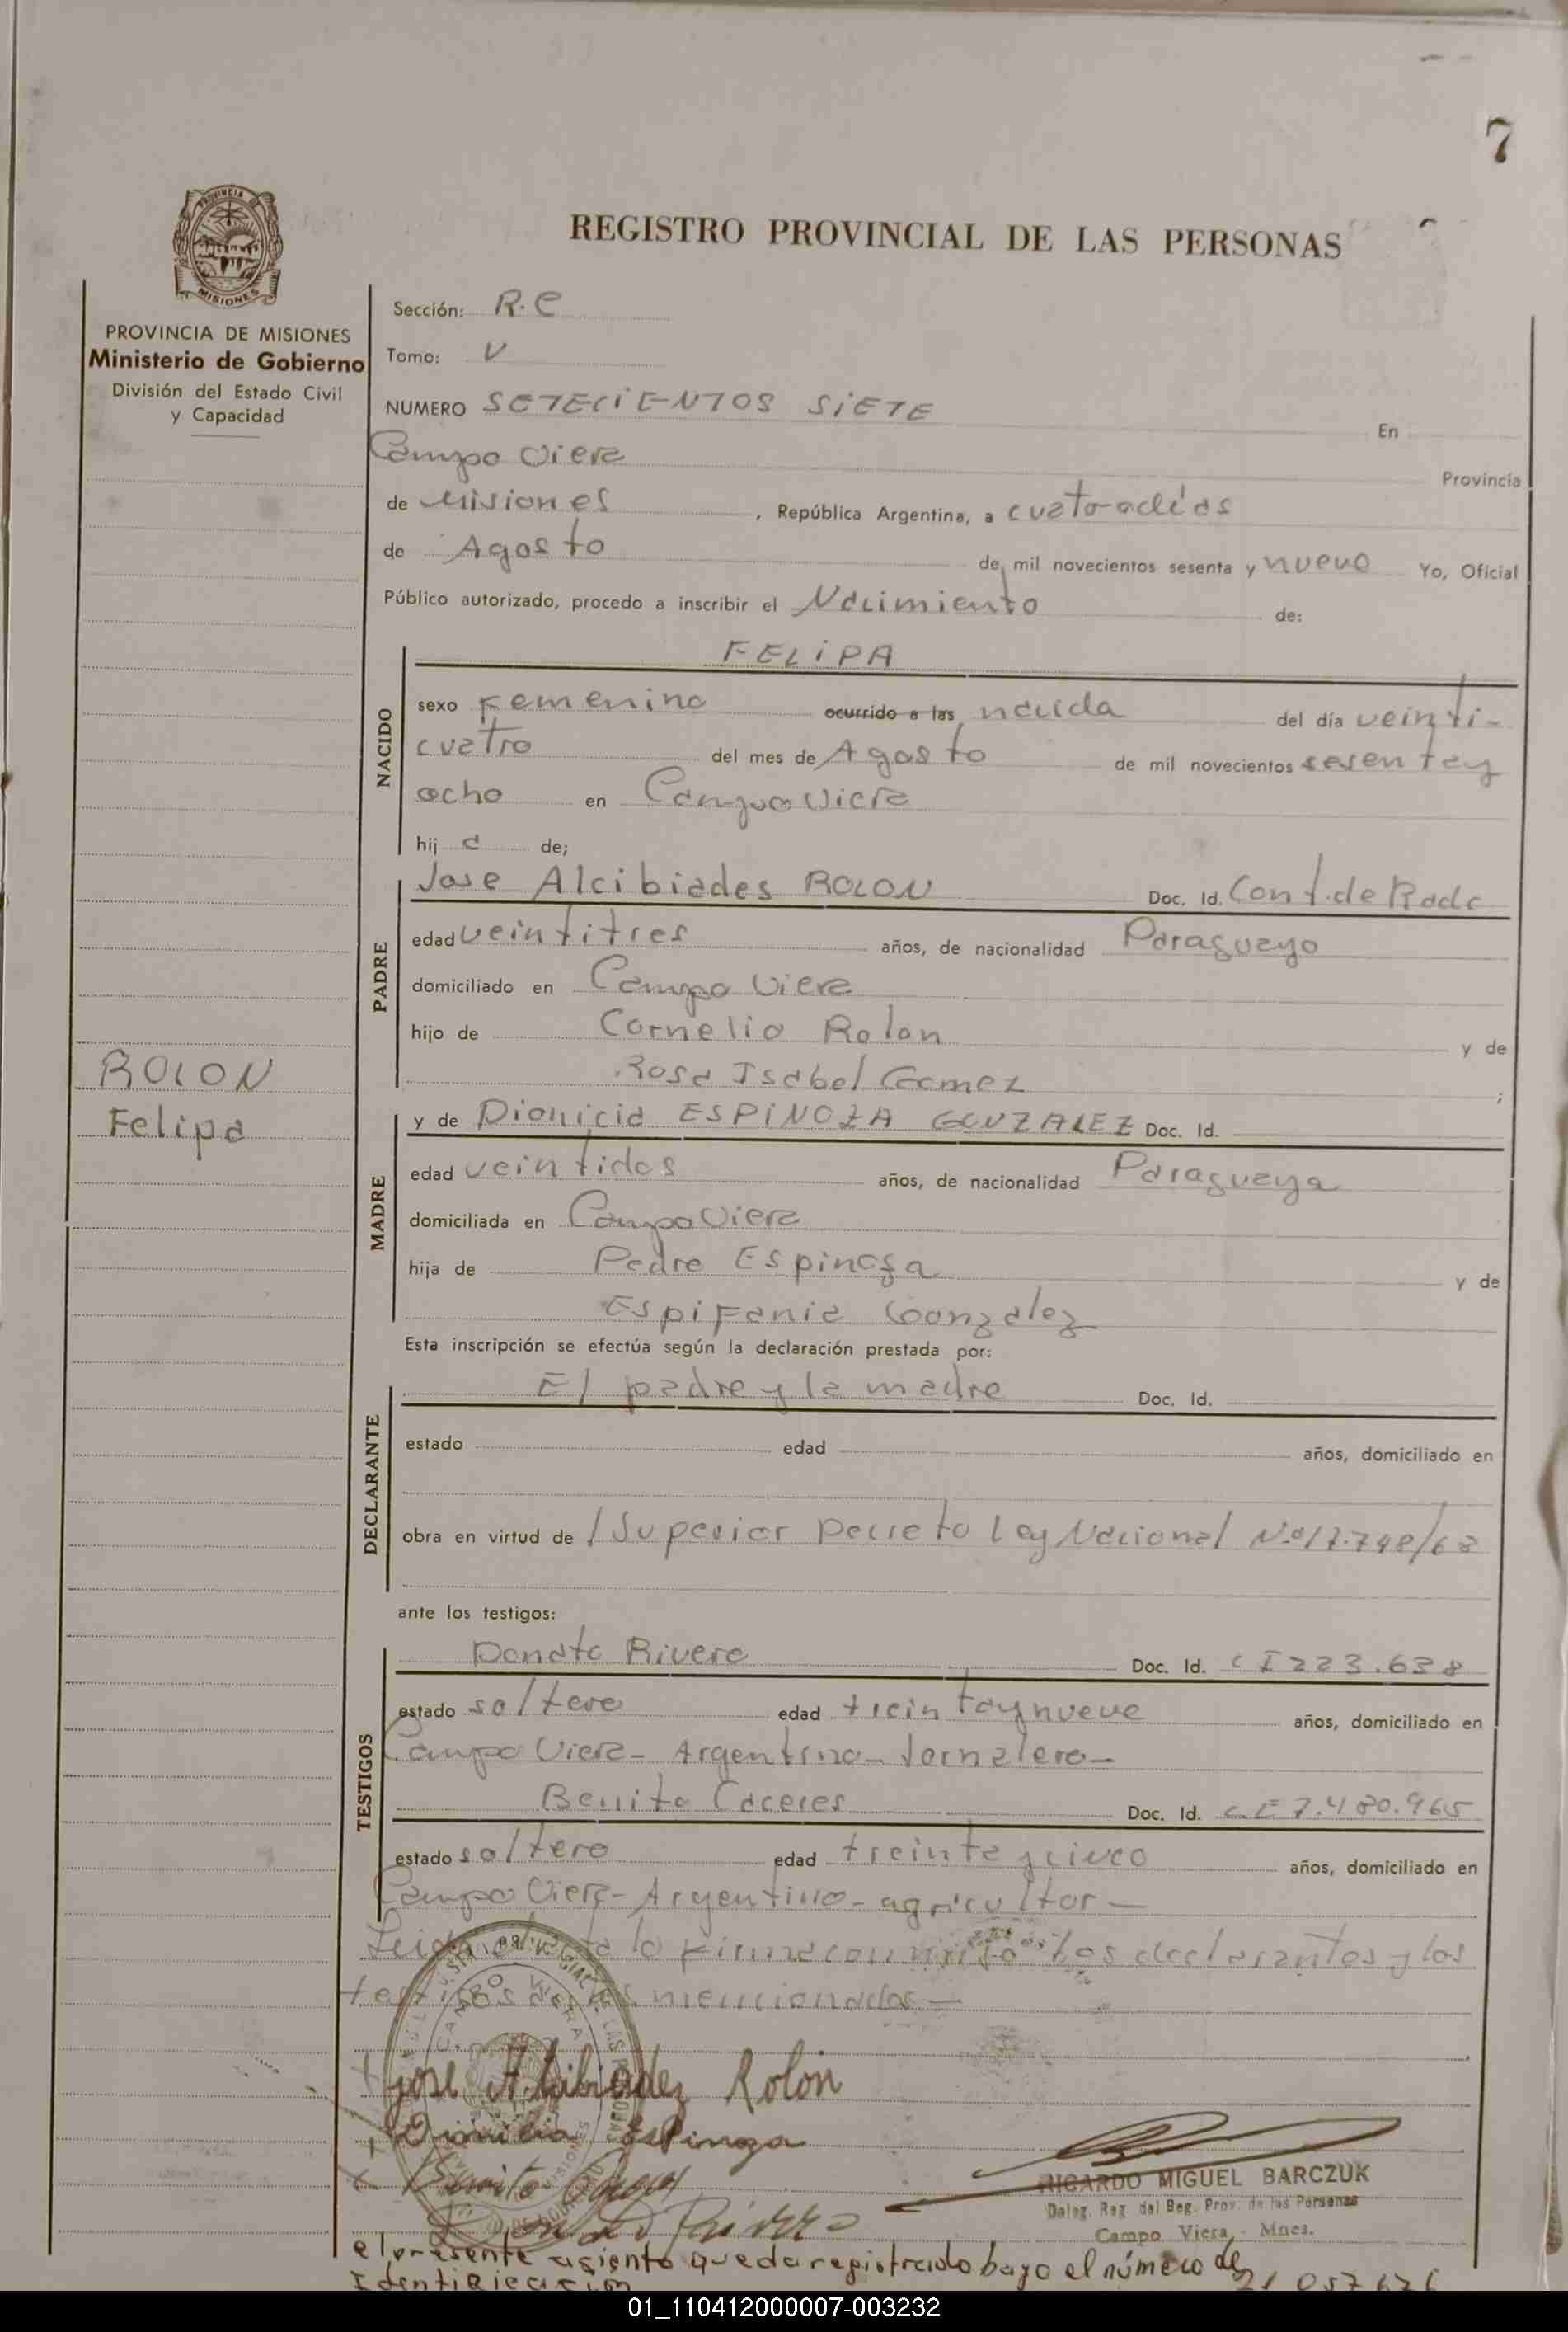 7
PROVINCIA DE
MISIONES
REGISTRO PROVINCIAL DE LAS PERSONAS
PROVINCIA DE MISIONES
Ministerio de Gobierno
División del Estado Civil
y Capacidad
Sección: R.C
Tomo: V
NUMERO SETECIENTOS SIETE En
Campo Viera Provincia
de Misiones, República Argentina, a cuatro días
de Agosto de mil novecientos sesenta y nueve Yo, Oficial
Público autorizado, procedo a inscribir el Nacimiento de:
NACIDO
FELIPA
sexo Femenino ocurrido a las nacida del día veinti-
cuatro del mes de Agosto de mil novecientos sesentay
ocho en Campo Viera
hija de;
PADRE
Jose Alcibiades ROLON Doc. Id. Cont. de Radc
edad veintitres años, de nacionalidad Paraguayo
domiciliado en Campo Viera
hijo de Cornelio Rolon y de
Rosa Isabel Gomez ;
ROLON
Felipa
MADRE
y de Dionicia ESPINOZA GONZALEZ Doc. Id.
edad veintidos años, de nacionalidad Paraguaya
domiciliada en Campo Viera
hija de Pedro Espinoza y de
Espifania Gonzalez
Esta inscripción se efectúa según la declaración prestada por:
DECLARANTE
El padre y la madre Doc. Id.
estado edad años, domiciliado en
obra en virtud de /Superior Decreto Ley Nacional Nº17.748/68
ante los testigos:
TESTIGOS
Donato Rivero Doc. Id. C I 223.638
estado soltero edad treintaynueve años, domiciliado en
Campo Viera- Argentino- Jornalero-
Benito Caceres Doc. Id. C.I 7.480.965
estado soltero edad treinta y cinco años, domiciliado en
Campo Viera- Argentino- agricultor-
Leida el acta lo firma conmigo los declarantes y los
testigos mencionados.-
jose Alcibiadez Rolon
Dionicia Espinoza
Benito
Rivero
RICARDO MIGUEL BARCZUK
Deleg. Reg. del Reg. Prov. de las Personas
Campo Viera, - Mnes.
el presente asiento queda registrado bajo el número de
Identificacion 21 057 626
01_110412000007-003232